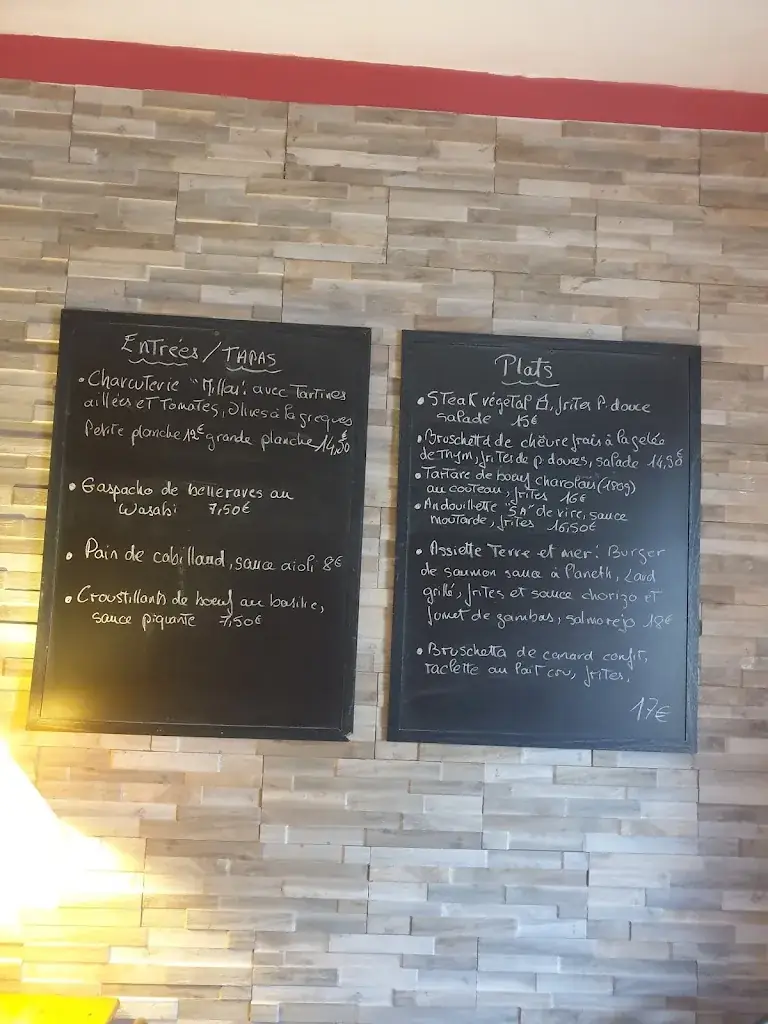 Entrées / TAPAS
• Charcuterie "Millas" avec Tartines
aillées et Tomates, Olives à la grecques
Petite planche 12€ grande planche 14,50€
• Gaspacho de betteraves au
Wasabi 7,50€
• Pain de cabillaud, sauce aioli 8€
• Croustillants de boeuf au basilic,
sauce piquante 7,50€
Plats
• STeak végétal, frites P. douce
salade 15€
• Bruschetta de chèvre frais à la gelée
de Thym, frites de p. douces, salade 14,50€
• Tartare de boeuf charolais (180g)
au couteau, frites 16€
• Andouillette "5A" de vire, sauce
moutarde, frites 16,50€
• Assiette Terre et mer: Burger
de saumon sauce à l'aneth, Lard
grillé, frites et sauce chorizo et
fumet de gambas, salmorejo 18€
• Bruschetta de canard confit,
raclette au lait cru, frites.
17€